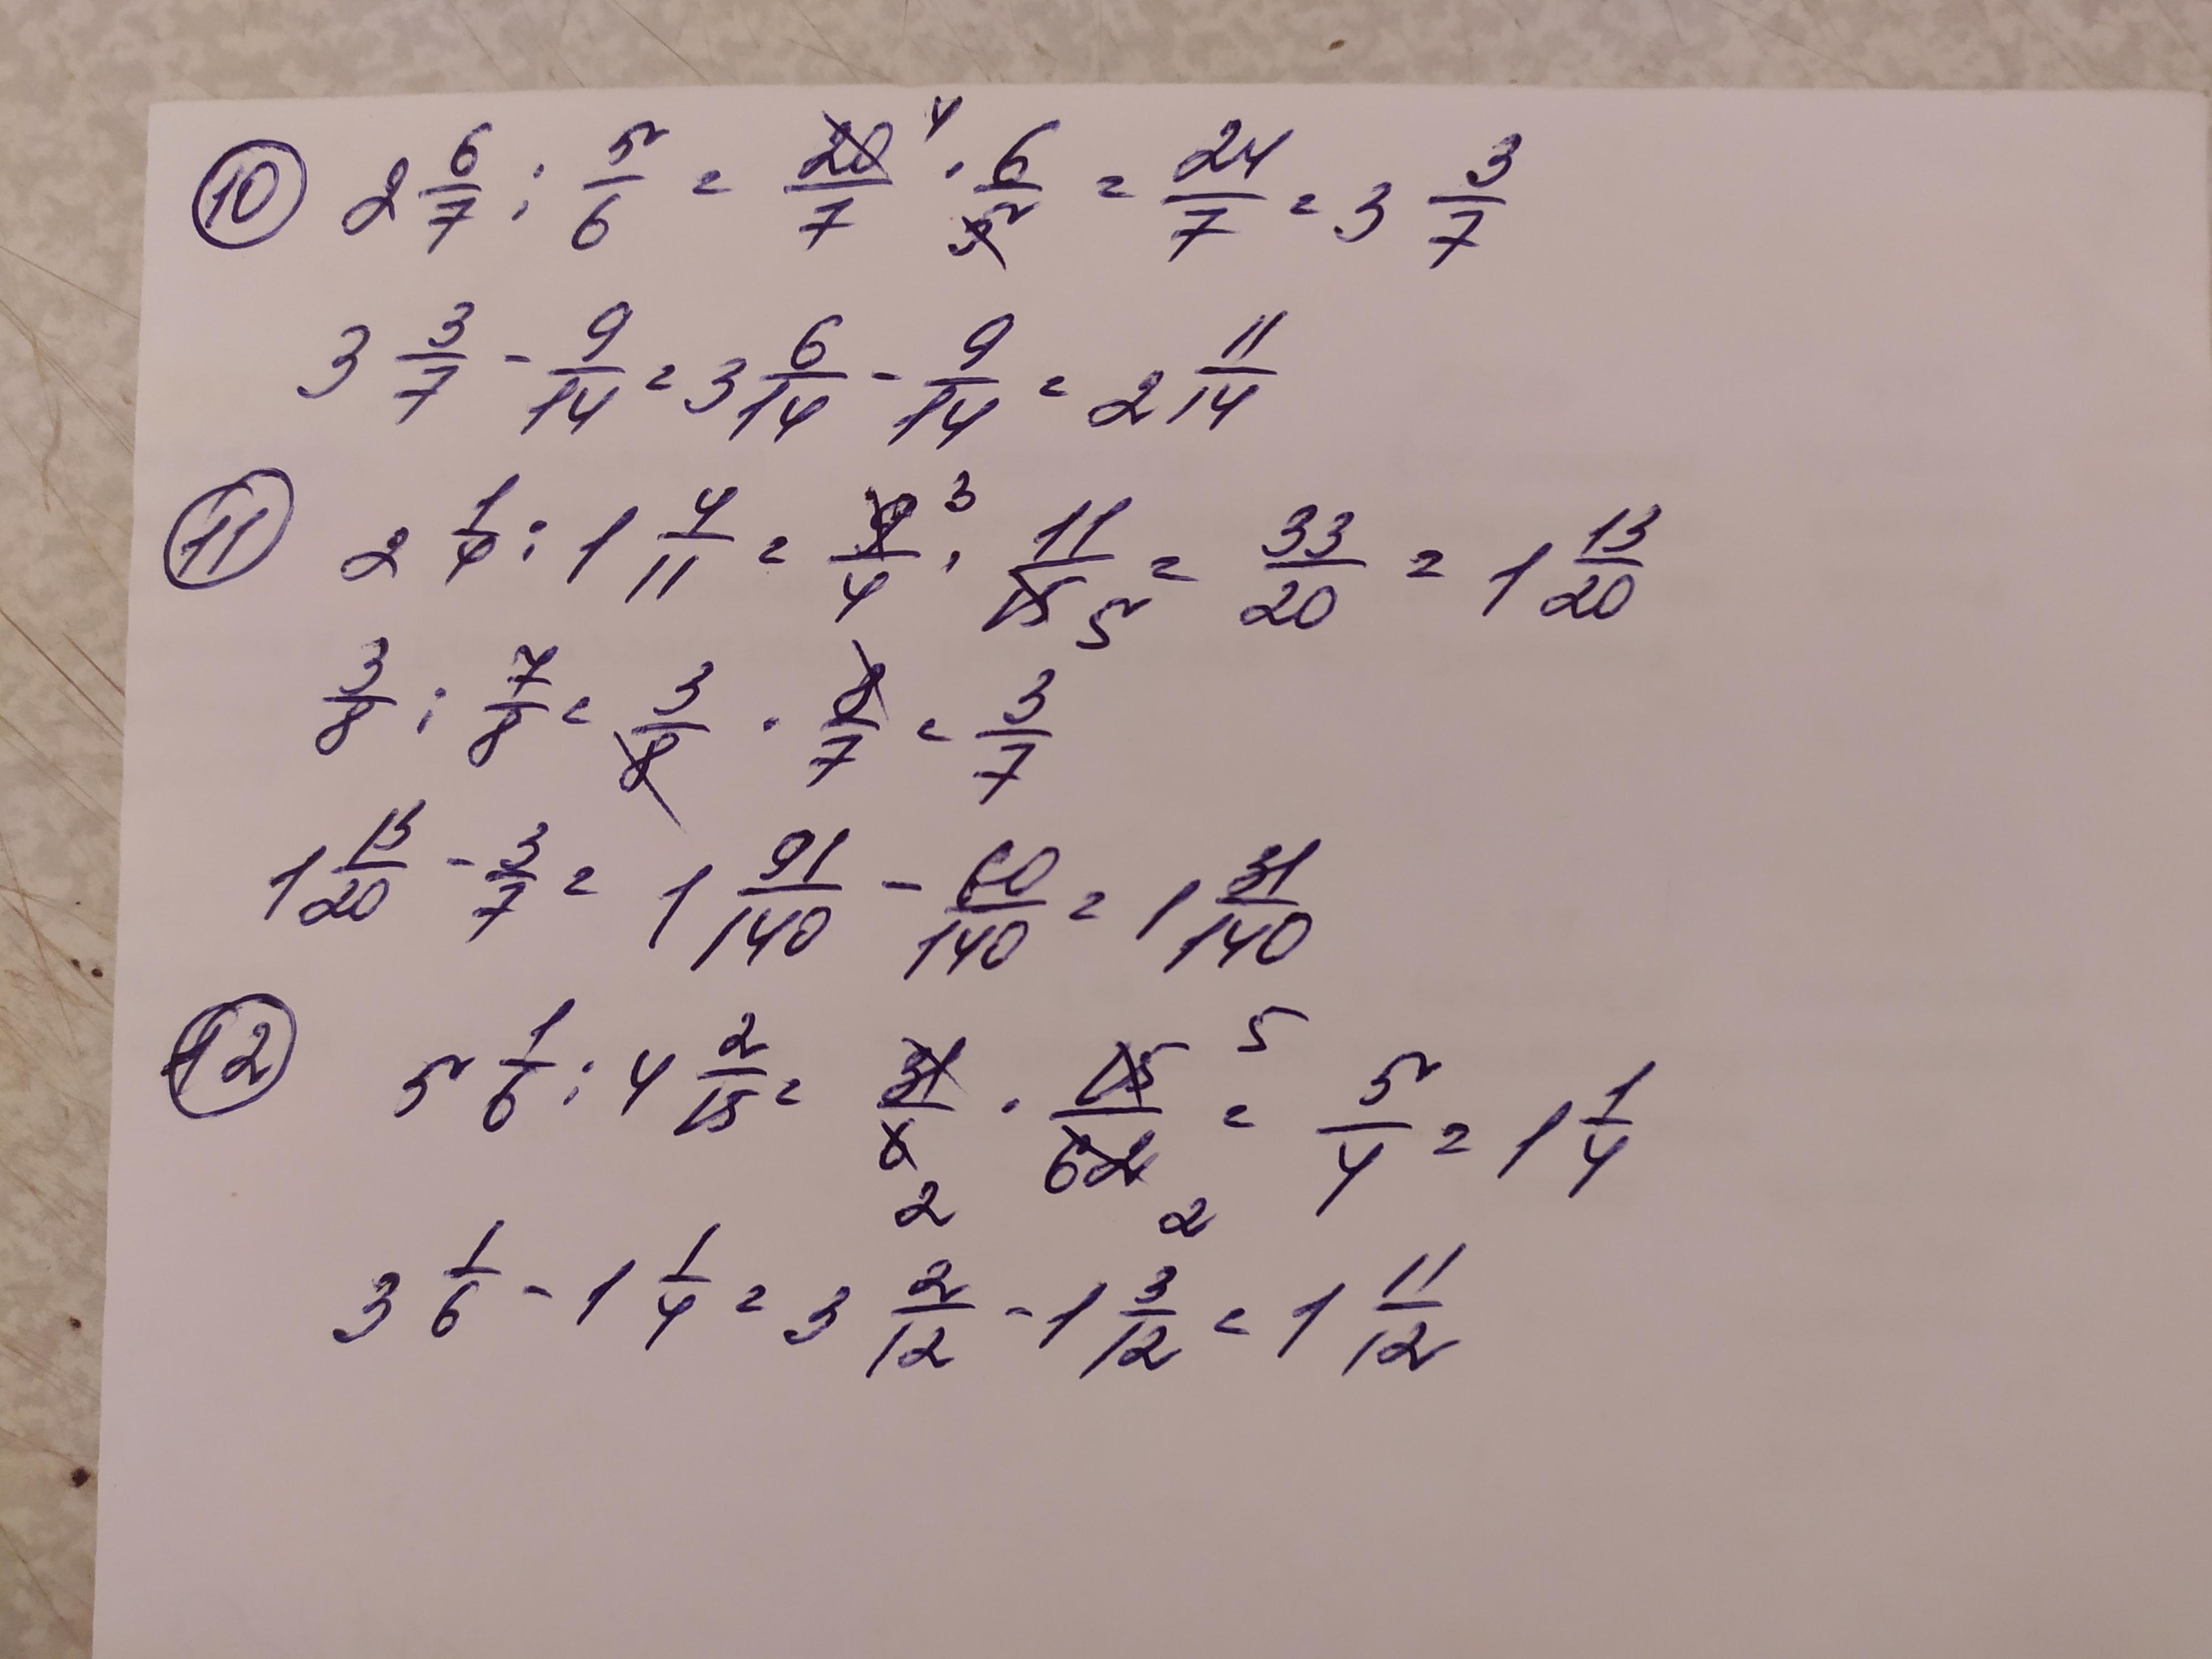 ⑩ 2 6/7 : 5/6 = 20/7 4 · 6/5 = 24/7 = 3 3/7
3 3/7 - 9/14 = 3 6/14 - 9/14 = 2 11/14
⑪ 2 1/4 : 1 4/11 = 9/4 3 · 11/15 5 = 33/20 = 1 13/20
3/8 : 7/8 = 3/8 · 8/7 = 3/7
1 13/20 - 3/7 = 1 91/140 - 60/140 = 1 31/140
⑫ 5 1/6 : 4 2/15 = 31/6 2 · 15/62 5 2 = 5/4 = 1 1/4
3 1/6 - 1 1/4 = 3 2/12 - 1 3/12 = 1 11/12